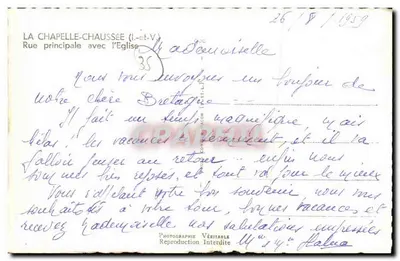 26/8/1959
LA CHAPELLE-CHAUSSÉE (I.-et-V.)
Rue principale avec l'Eglise
35
Mademoiselle
Nous vous envoyons un bonjour de
notre chère Bretagne
Il fait un temps magnifique, mais
hélas! les vacances se terminent, et il va
falloir songer au retour... enfin nous
sommes bien reposés, et tout va pour le mieux
Vous n'oubliant votre bon souvenir nous vous
souhaitons à votre tour, bonnes vacances, et
recevez Mademoiselle nos salutations empressées
Mr et Me
CPARAMA
Reproduction Interdite